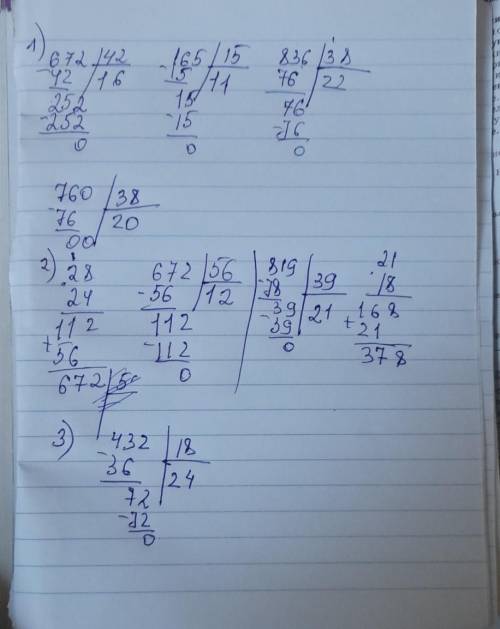 1) 672 | 42   165 | 15   836 | 38
- 42 | 16   - 15 | 11   76 | 22
252   15   76
- 252   - 15   - 76
0   0   0
760 | 38
- 76 | 20
00
2) 28   672 | 56   819 | 39   21
24   - 56 | 12   - 78 | 21   18
112   112   39   168
+ 56   - 112   - 39   + 21
672   0   0   378
3) 432 | 18
- 36 | 24
72
- 72
0